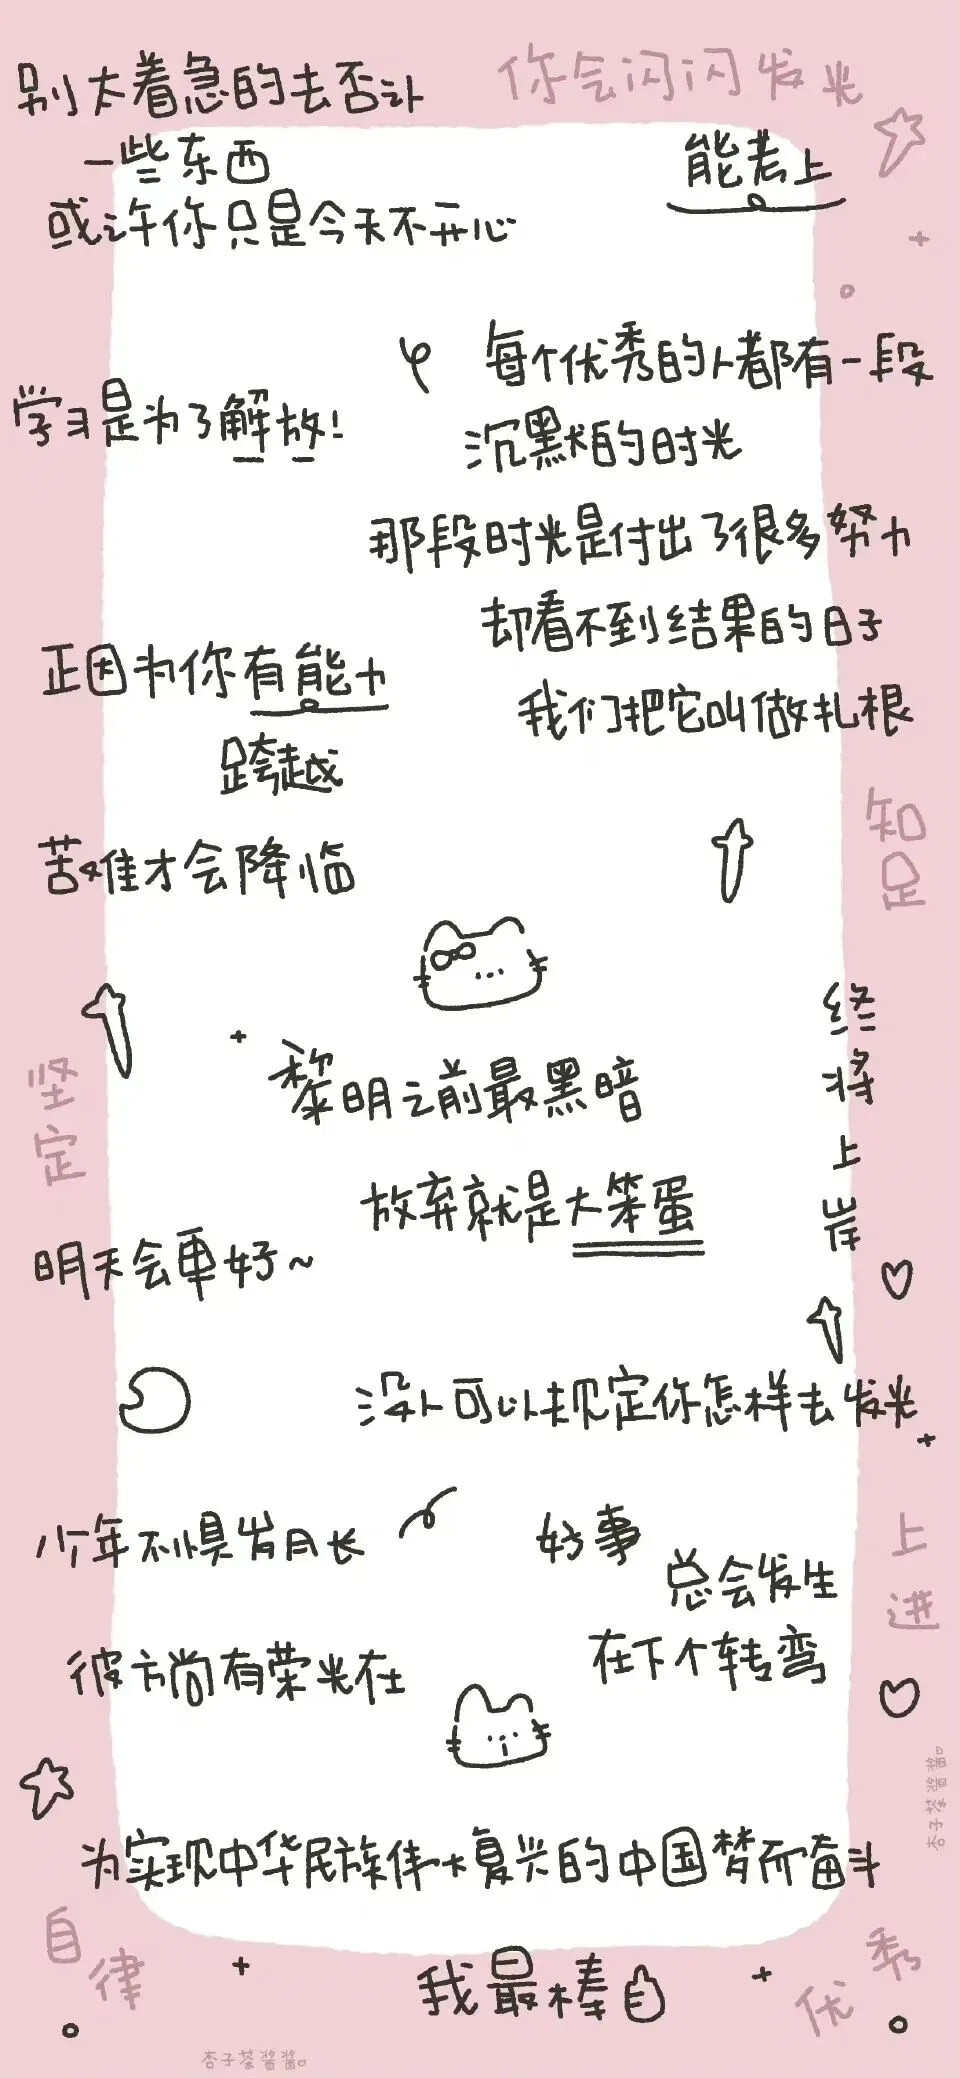 别太着急的去否认
一些东西
或许你只是今天不开心
你会闪闪发光
能考上
学习是为了解放!
每个优秀的人都有一段
沉默的时光
那段时光是付出了很多努力
却看不到结果的日子
我们把它叫做扎根
正因为你有能力
跨越
苦难才会降临
知足
坚定
黎明之前最黑暗
放弃就是大笨蛋
终将上岸
明天会更好~
没人可以规定你怎样去发光
少年不惧岁月长
彼方尚有荣光在
好事
总会发生
在下个转弯
上进
杏子茶酱酱
为实现中华民族伟大复兴的中国梦而奋斗
自律
我最棒
优秀
杏子茶酱酱